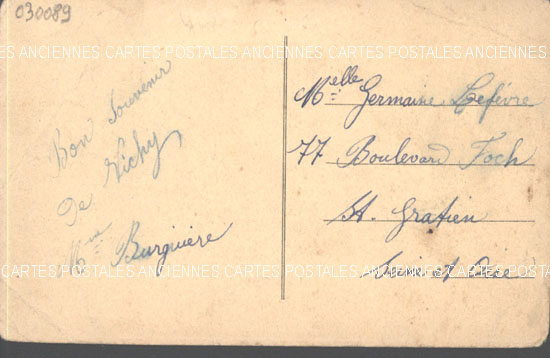 030089
CARTES POSTALES ANCIENNES CARTES POSTALES ANCIENNES CARTES POSTALES
Bon Souvenir
de Vichy
Mme Burguière
Melle Germaine Lefèvre
77 Boulevard Foch
St. Gratien
Seine et Oise
CARTES POSTALES ANCIENNES CARTES POSTALES ANCIENNES CARTES POSTALES